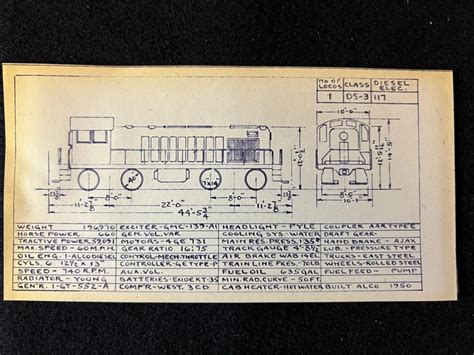 No OF LOCOS CLASS DIESEL ELEC.
1 DS-3 117
10'-0"
12'-5½"
14'-5⅛"
40"
7X14
22'-0"
44'-5¾"
WEIGHT 196970 EXCITER-GMC-139-A1 HEADLIGHT-PYLE COUPLER AAR TYPE E
HORSE POWER 660 GEM.VOL.VAR COOLING SYS.WATER DRAFT GEAR-
TRACTIVE POWER 59091 MOTORS-4 GE 731 MAIN RES.PRESS 135# HAND BRAKE - AJAX
MAX.SPEED-60 M.P.H. GEAR RATIO 16:75 TRACK GAUGE 4'-8½ LUB.-PRESSURE TYPE
OIL ENG. 1-ALCO DIESEL CONTROL-MECH-THROTTLE AIR BRAKE WAB 14EL TRUCKS-CAST STEEL
CYLS. 6 12½ X 13" CONTROLLER-GE TYPE-P TRAIN LINE PRES.-70LB WHEELS-ROLLED STEEL
SPEED - 740 R.P.M. AUX.VOL. FUEL OIL 635 GAL FUEL FEED - PUMP
RADIATORS - BATTERIES-EXIDE MIN.RAD.CURVE-50FT.
GEN'R. 1-GT-552-A COMP'R-WEST. 3CD CAB HEATER-HOT WATER BUILT ALCO 1950